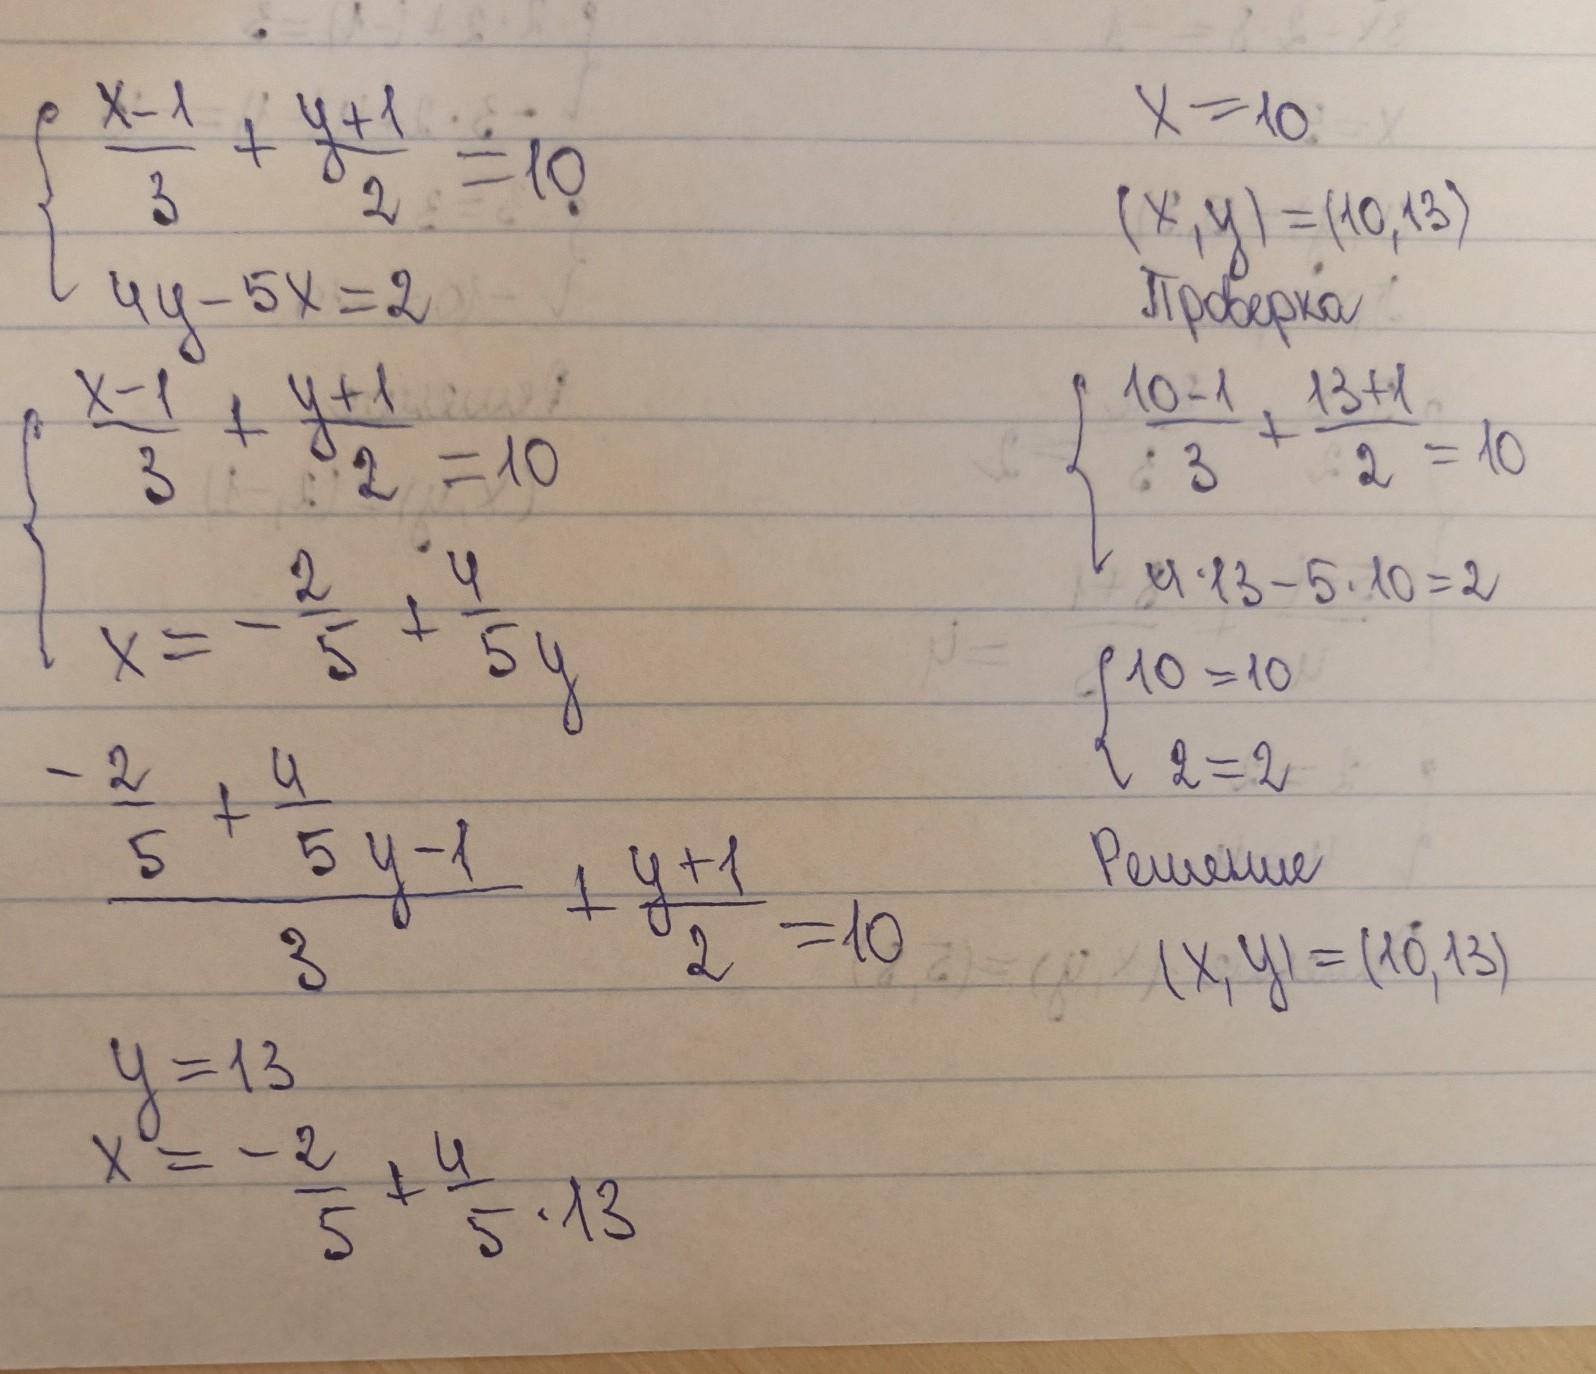 { (x-1)/3 + (y+1)/2 = 10
4y - 5x = 2
{ (x-1)/3 + (y+1)/2 = 10
x = - 2/5 + 4/5 y
(- 2/5 + 4/5 y - 1)/3 + (y+1)/2 = 10
y = 13
x = - 2/5 + 4/5 · 13
x = 10
(x, y) = (10, 13)
Проверка
{ (10-1)/3 + (13+1)/2 = 10
4·13 - 5·10 = 2
{ 10 = 10
2 = 2
Решение
(x, y) = (10, 13)